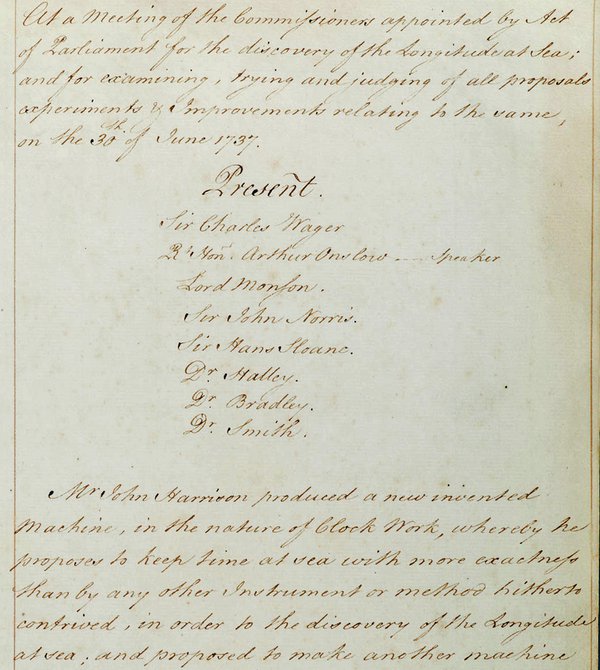 At a Meeting of the Commissioners appointed by Act
of Parliament for the discovery of the Longitude at Sea;
and for examining, trying and judging of all proposals
experiments & Improvements relating to the same,
on the 30th of June 1737.
Present.
Sir Charles Wager
Rt Hon. Arthur Onslow — Speaker
Lord Monson.
Sir John Norris.
Sir Hans Sloane.
Dr Halley.
Dr Bradley.
Dr Smith.
Mr John Harrison produced a new invented
Machine, in the nature of Clock Work, whereby he
proposes to keep time at sea with more exactness
than by any other Instrument or method hitherto
contrived, in order to the discovery of the Longitude
at sea; and proposed to make another machine